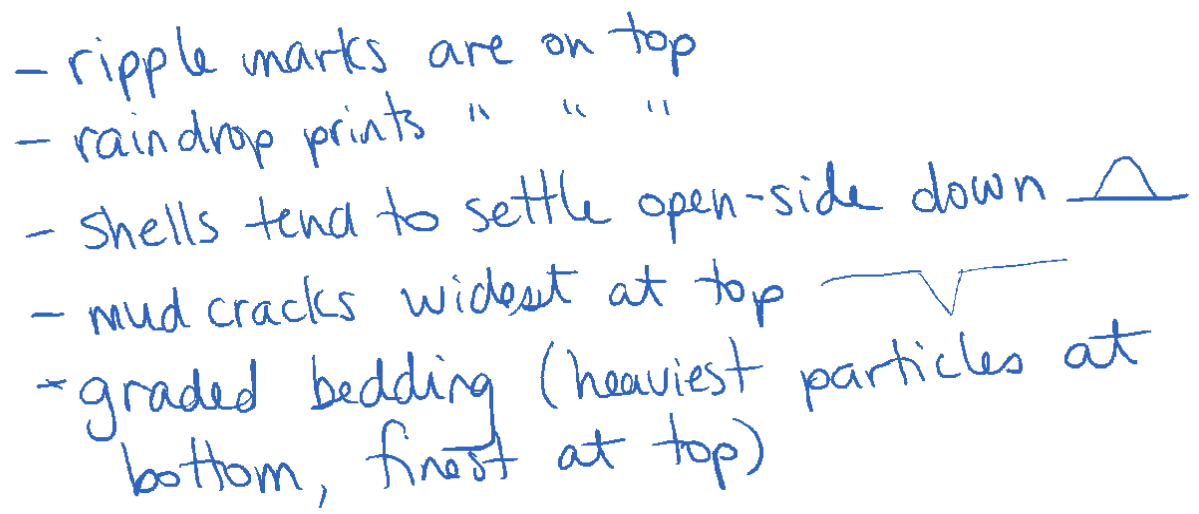 - ripple marks are on top
- raindrop prints " " "
- shells tend to settle open-side down
- mud cracks widest at top
- graded bedding (heaviest particles at
bottom, finest at top)